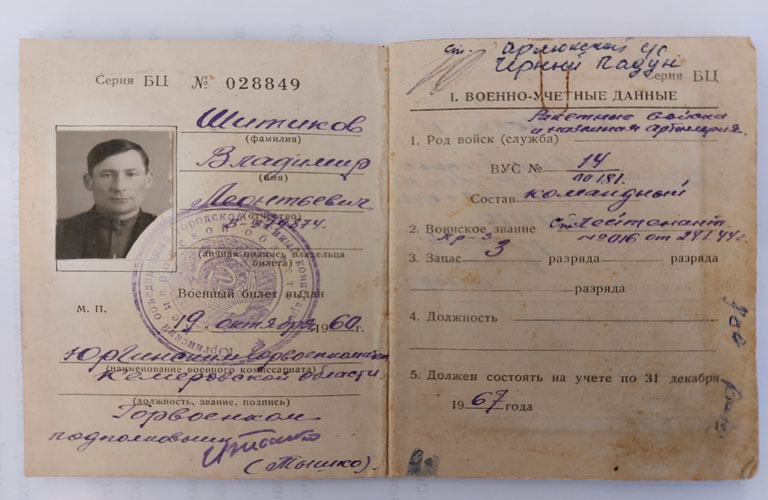 Серия БЦ № 028849
Шитиков
(фамилия)
Владимир
(имя)
Леонтьевич
(отчество)
(личная подпись владельца билета)
Военный билет выдан
М. П.
19 октября 1960 г.
Юргинским горвоенкоматом
(наименование военного комиссариата)
Кемеровской области
(должность, звание, подпись)
Горвоенком
подполковник
(Тышко).
Черный Падун
Серия БЦ
I. ВОЕННО-УЧЕТНЫЕ ДАННЫЕ
Ракетные войска
1. Род войск (служба) и наземная артиллерия.
ВУС № 14
Состав командный
2. Воинское звание ст. лейтенант
№ 016 от 24.1.44г.
3. Запас 3 разряда разряда
разряда
4. Должность
5. Должен состоять на учете по 31 декабря
1967 года